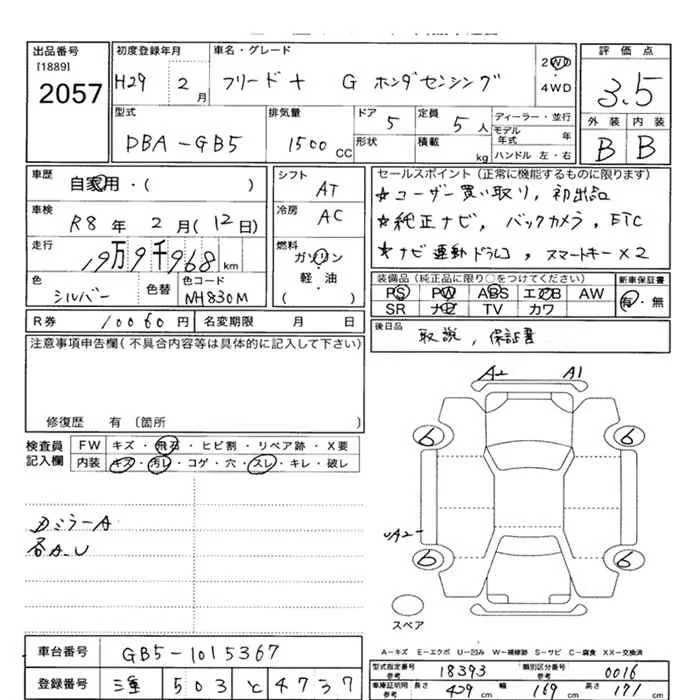 出品番号 初度登録年月 車名・グレード 評価点
[1889]
2057
H29 2月 フリード+ G ホンダセンシング 2WD 4WD 3.5
型式 排気量 ドア 定員 ディーラー・並行 外装 内装
DBA-GB5 1500CC 5 5人 モデル年式 年 B B
形状 積載 kg ハンドル 左・右
車歴 自家用・( ) シフト AT セールスポイント(正常に機能するものに限ります)
☆ユーザー買い取り, 初出品
車検 R8年 2月(12日) 冷房 AC
☆純正ナビ, バックカメラ, ETC
走行 19万9千968km 燃料 ガソリン 軽・油 ( )
☆ナビ連動ドラレコ, スマートキー×2
色 シルバー 色替 色コード NH830M
装備品(純正品に限り○をつけてください) 新車保証書
PS PW ABS エアB AW 有・無
SR ナビ TV カワ
R券 10060円 名変期限 月 日
後日品 取説, 保証書
注意事項申告欄(不具合内容等は具体的に記入して下さい)
修復歴 有 〔箇所 〕
検査員記入欄 FW キズ・飛石・ヒビ割・リペア跡・X要
内装 キズ・汚レ・コゲ・穴・スレ・キレ・破レ
A2 A1
6 6
DミラーA
各A.U
UA2
6 6
スペア
A−キズ E−エクボ U−凹み W−補修跡 S−サビ C−腐食 XX−交換済
車台番号 GB5-1015367
型式指定番号 参考 18393 類別区分番号 参考 0016
登録番号 三重 503 と 4737
車庫証明用 参考 長さ 429cm 幅 169cm 高さ 171cm